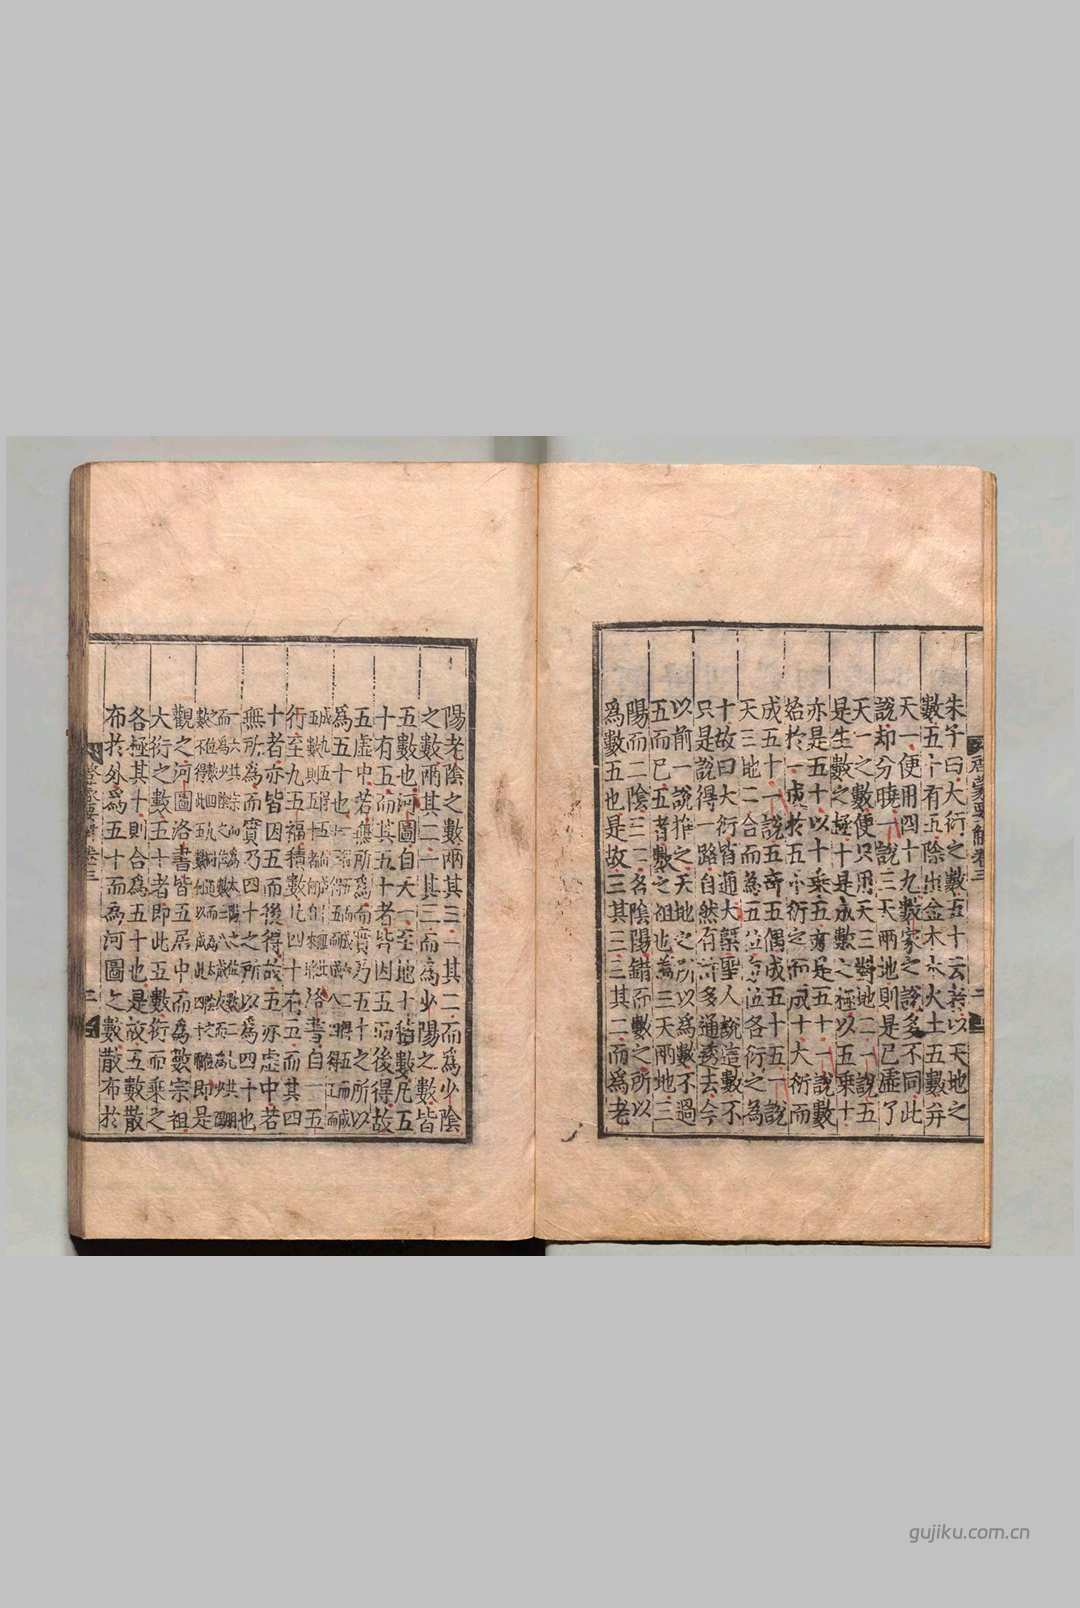 朱子曰大衍之數五十云者以天地之
數五十有五除出金木水火土五數并
天一便用四十九數家之說多不同此
說却分曉一說三天兩地則是已虛了
天一之數便只用天三對地二一說五
是生數之極十是成數之極以五乘十
亦是五十以十乘五亦是五十一說數
始於一成於五小衍之而成十大衍而
成五十一說五奇五偶成五十五一說
天三地二合而為五位位各衍之為
十故曰大衍皆通大槩聖人說這數不
只是說得一路自然有許多通透去今
以前一說推之天地之所以為數不過
五而已五者數之祖也蓋三天兩地三
陽而二陰三二名陰陽錯而數之所以
為數五也是故三其三三其二而為老
陽老陰之數兩其三一其二而為少陰
之數兩其二一其三而為少陽之數皆
五數也河圖自天一至地十積數凡五
十有五而其五十者皆因五而後得故
五虛中若無所為而實乃五十之所以
為五十也
洛書自一五
行至九五福積數凡四十有五而其四
十者亦皆因五而後得故五亦虛中若
無所為而實乃四十之所以為四十也
即是
觀之河圖洛書皆五居中而為數宗祖
大衍之數五十者即此五數衍而乘之
各極其十則合為五十也是故五數散
布於外為五十而為河圖之數散布於
啓蒙要解卷三
gujiku.com.cn